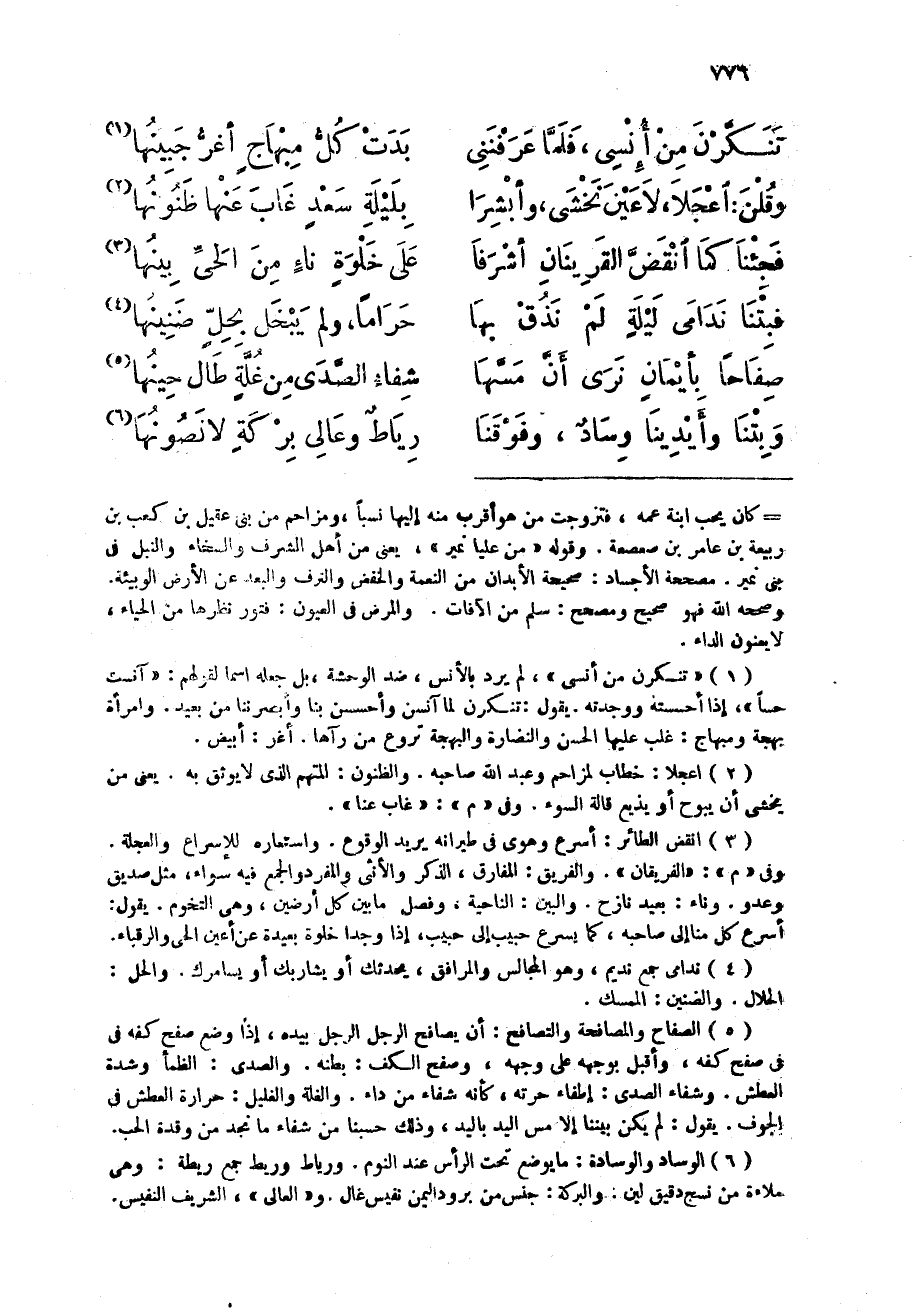 ٧٧٦
تَنَـكَّرْنَ مِنْ أُنْسِى ، فَلَمَّا عَرَفْنَنِى بَدَتْ كُلُّ مِبْهَاجٍ أغرُّ جَبِينُها (١)
وقُلْنَ : اُعْجَلَا، لَاعَيْنَ تَخْشَى، وأبْشِرَا بِلَيْلَةِ سَعْدٍ غَابَ عَنْها ظَنُونُها (٢)
فَجِئْنَا كمَا اُنْقَضَّ القَرِينانِ أشْرَفاَ عَلَى خَلْوَةٍ ناءٍ مِنَ الحَىِّ بِينُها (٣)
فبِتْنَا نَدَامَى لَيْلَةٍ لَمْ نَذُقْ بِها حَرَاماً، ولم يَبْخَل بِحِلٍّ ضَنِينُها (٤)
صِفَاحًا بِأيْمَانٍ نَرَى أَنَّ مَسَّهَا شِفاء الصَّدَى مِن غُلَّةٍ طَال حِينُها (٥)
وَبِتْنَا وأَيْدِينَا وِسَادٌ ، وفَوْقَنَا رِياطٌ وعَالِى بِرْكَةٍ لانَصُونُهَا (٦)
= كان يحب ابنة عمه ، فتزوجت من هو أقرب منه إليها نسباً ، ومزاحم من بنى عقيل بن كعب بن
ربيعة بن عامر بن صعصعة . وقوله « من عليا نمير » ، يعنى من أهل الشرف والسخاء والنبل فى
بنى نمير . مصححة الأجساد : صحيحة الأبدان من النعمة والخفض والترف والبعد عن الأرض الوبيئة.
وصححه الله فهو صحيح ومصحح : سلم من الآفات . والمرض فى العيون : فتور نظرها من الحياء ،
لايعنون الداء .
( ١ ) « تنـكرن من أنسى » ، لم يرد بالأنس ، ضد الوحشة ، بل جعله اسما لقولهم : « آنست
حساً »، إذا أحسسته ووجدته . يقول : تنـكرن لما آنسن وأحسسن بنا وأبصرننا من بعيد . وامرأة
بهجة ومبهاج : غلب عليها الحسن والنضارة والبهجة تروع من رآها . أغر : أبيض .
( ٢ ) اعجلا : خطاب لمزاحم وعبد الله صاحبه . والظنون : المتهم الذى لايوثق به . يعنى من
يخشى أن يبوح أو يذيع قالة السوء . وفى « م » : « غاب عنا » .
( ٣ ) انقض الطائر : أسرع وهوى فى طيرانه يريد الوقوع . واستعاره للإسراع والعجلة .
وفى « م » : «الفريقان» . والفريق : المفارق ، الذكر والأنثى والمفرد والجمع فيه سواء، مثل صديق
وعدو . وناء : بعيد نازح . والبين : الناحية ، وفصل مابين كل أرضين ، وهى التخوم . يقول:
أسرع كل منا إلى صاحبه ، كما يسرع حبيب إلى حبيب، إذا وجدا خلوة بعيدة عن أعين الحى والرقباء.
( ٤ ) ندامى جمع نديم ، وهو المجالس والمرافق ، يحدثك أو يشاربك أو يسامرك . والحل :
الحلال . والضنين : الممسك .
( ٥ ) الصفاح والمصافحة والتصافح : أن يصافح الرجل الرجل بيده ، إذا وضع صفح كفه فى
فى صفح كفه ، وأقبل بوجهه على وجهه ، وصفح الـكف : بطنه . والصدى : الظمأ وشدة
العطش . وشفاء الصدى : إطفاء حرته ، كأنه شفاء من داء . والغلة والغليل : حرارة العطش فى
الجوف . يقول : لم يكن بيننا إلا مس اليد باليد ، وذلك حسبنا من شفاء ما نجد من وقدة الحب.
( ٦ ) الوساد والوسادة : مايوضع تحت الرأس عند النوم . ورياط وريط جمع ريطة : وهى
ملاءة من نسج دقيق لين . والبركة : جنس من برود اليمن نفيس غال . و« العالى » ، الشريف النفيس.